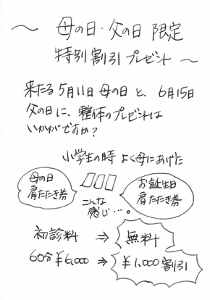 〜 母の日・父の日 限定
特別割引プレゼント 〜
来たる 5月11日 母の日 と、6月15日
父の日に、整体のプレゼントは
いかがですか?
小学生の時 よく母にあげた
母の日
肩たたき券
お誕生日
肩たたき券
こんな
感じ…。
初診料 ⇒ 無料
60分 ¥6,000 ⇒ ¥1,000割引